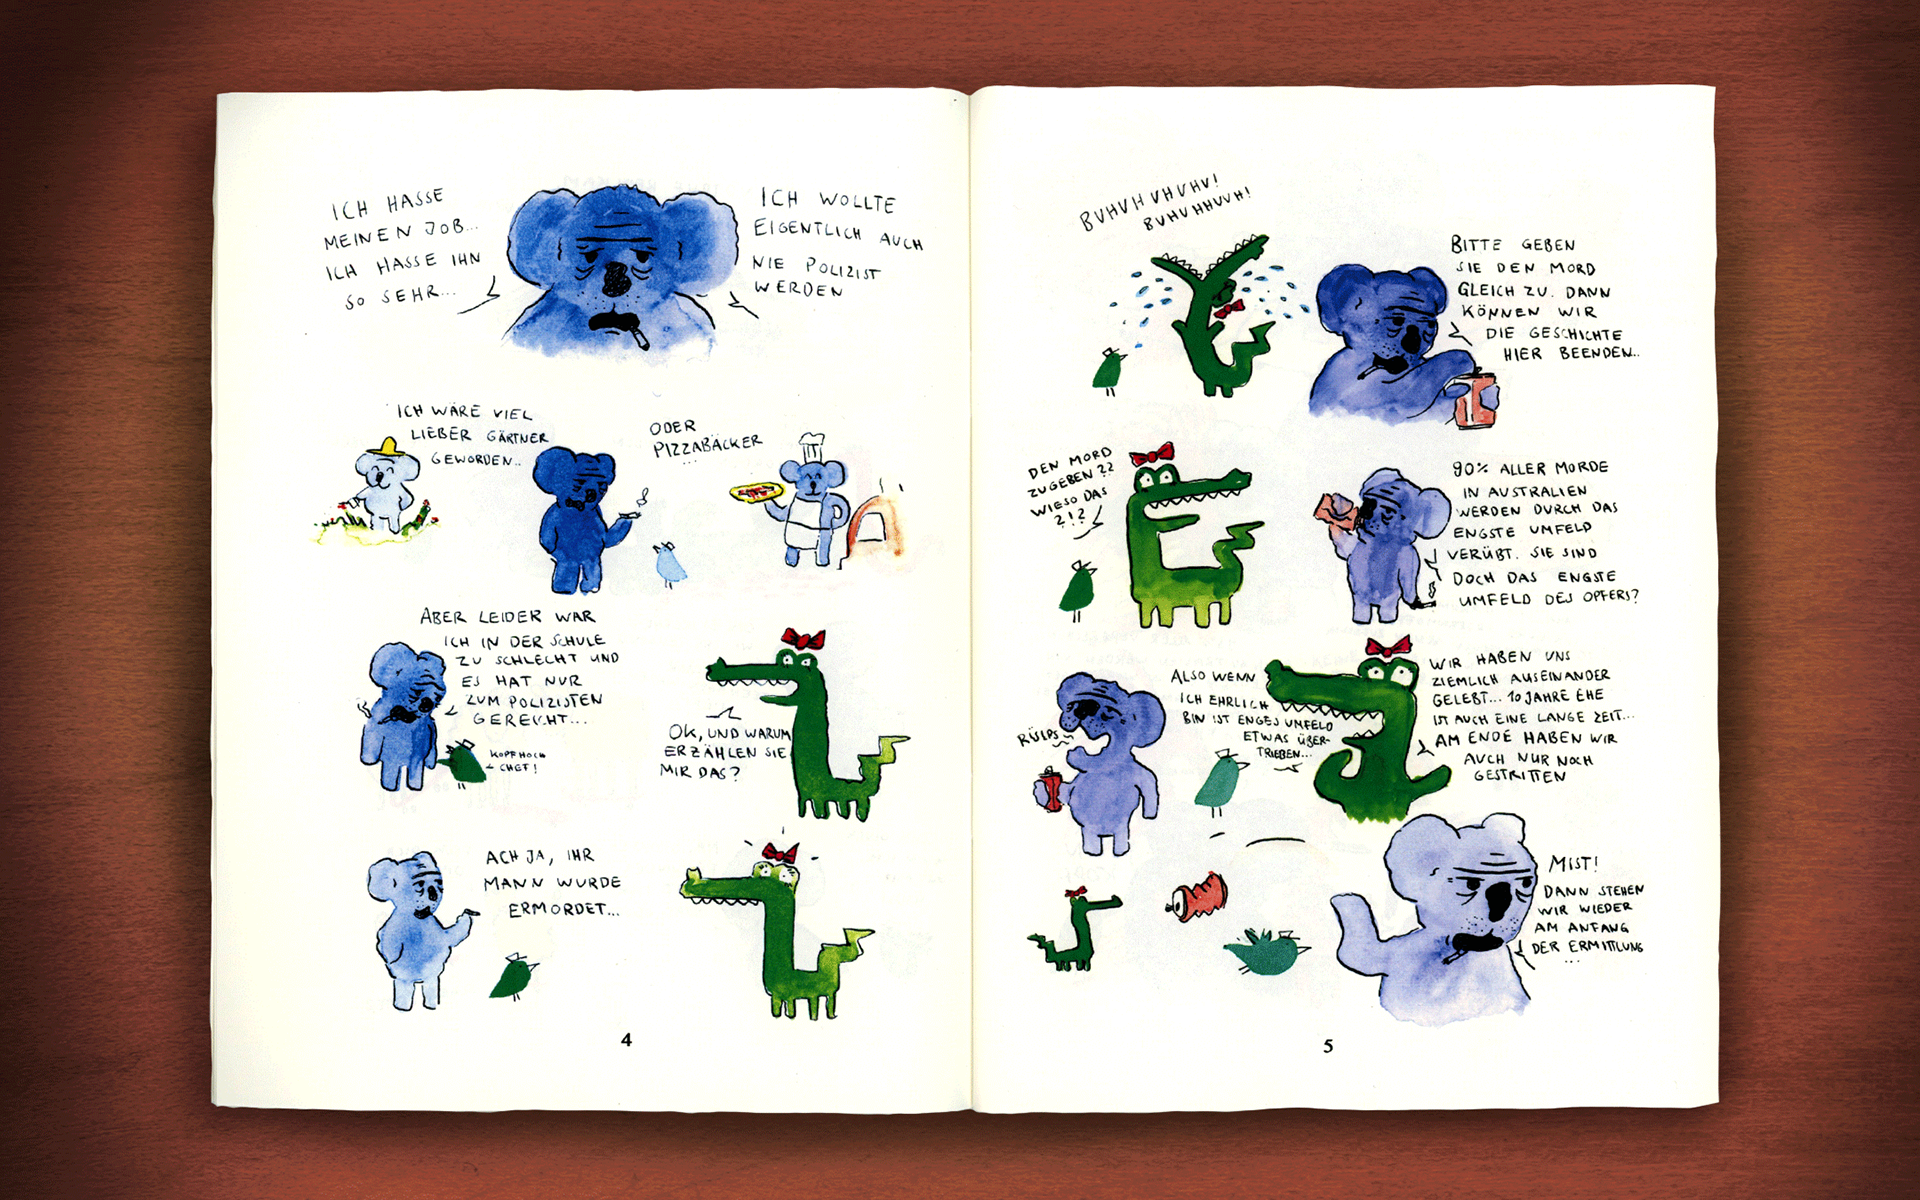 ICH HASSE
MEINEN JOB...
ICH HASSE IHN
SO SEHR...
ICH WOLLTE
EIGENTLICH AUCH
NIE POLIZIST
WERDEN
ICH WÄRE VIEL
LIEBER GÄRTNER
GEWORDEN..
ODER
PIZZABÄCKER
...
ABER LEIDER WAR
ICH IN DER SCHULE
ZU SCHLECHT UND
ES HAT NUR
ZUM POLIZISTEN
GEREICHT...
KOPF HOCH
CHEF!
OK, UND WARUM
ERZÄHLEN SIE
MIR DAS?
ACH JA, IHR
MANN WURDE
ERMORDET...
4
BUHUHUHUHU!
BUHUHHUUH!
BITTE GEBEN
SIE DEN MORD
GLEICH ZU. DANN
KÖNNEN WIR
DIE GESCHICHTE
HIER BEENDEN..
DEN MORD
ZUGEBEN??
WIESO DAS
?!?
90% ALLER MORDE
IN AUSTRALIEN
WERDEN DURCH DAS
ENGSTE UMFELD
VERÜBT. SIE SIND
DOCH DAS ENGSTE
UMFELD DES OPFERS?
RÜLPS
ALSO WENN
ICH EHRLICH
BIN IST ENGES UMFELD
ETWAS ÜBER-
TRIEBEN...
WIR HABEN UNS
ZIEMLICH AUSEINANDER
GELEBT... 10 JAHRE EHE
IST AUCH EINE LANGE ZEIT...
AM ENDE HABEN WIR
AUCH NUR NOCH
GESTRITTEN
MIST!
DANN STEHEN
WIR WIEDER
AM ANFANG
DER ERMITTLUNG
...
5